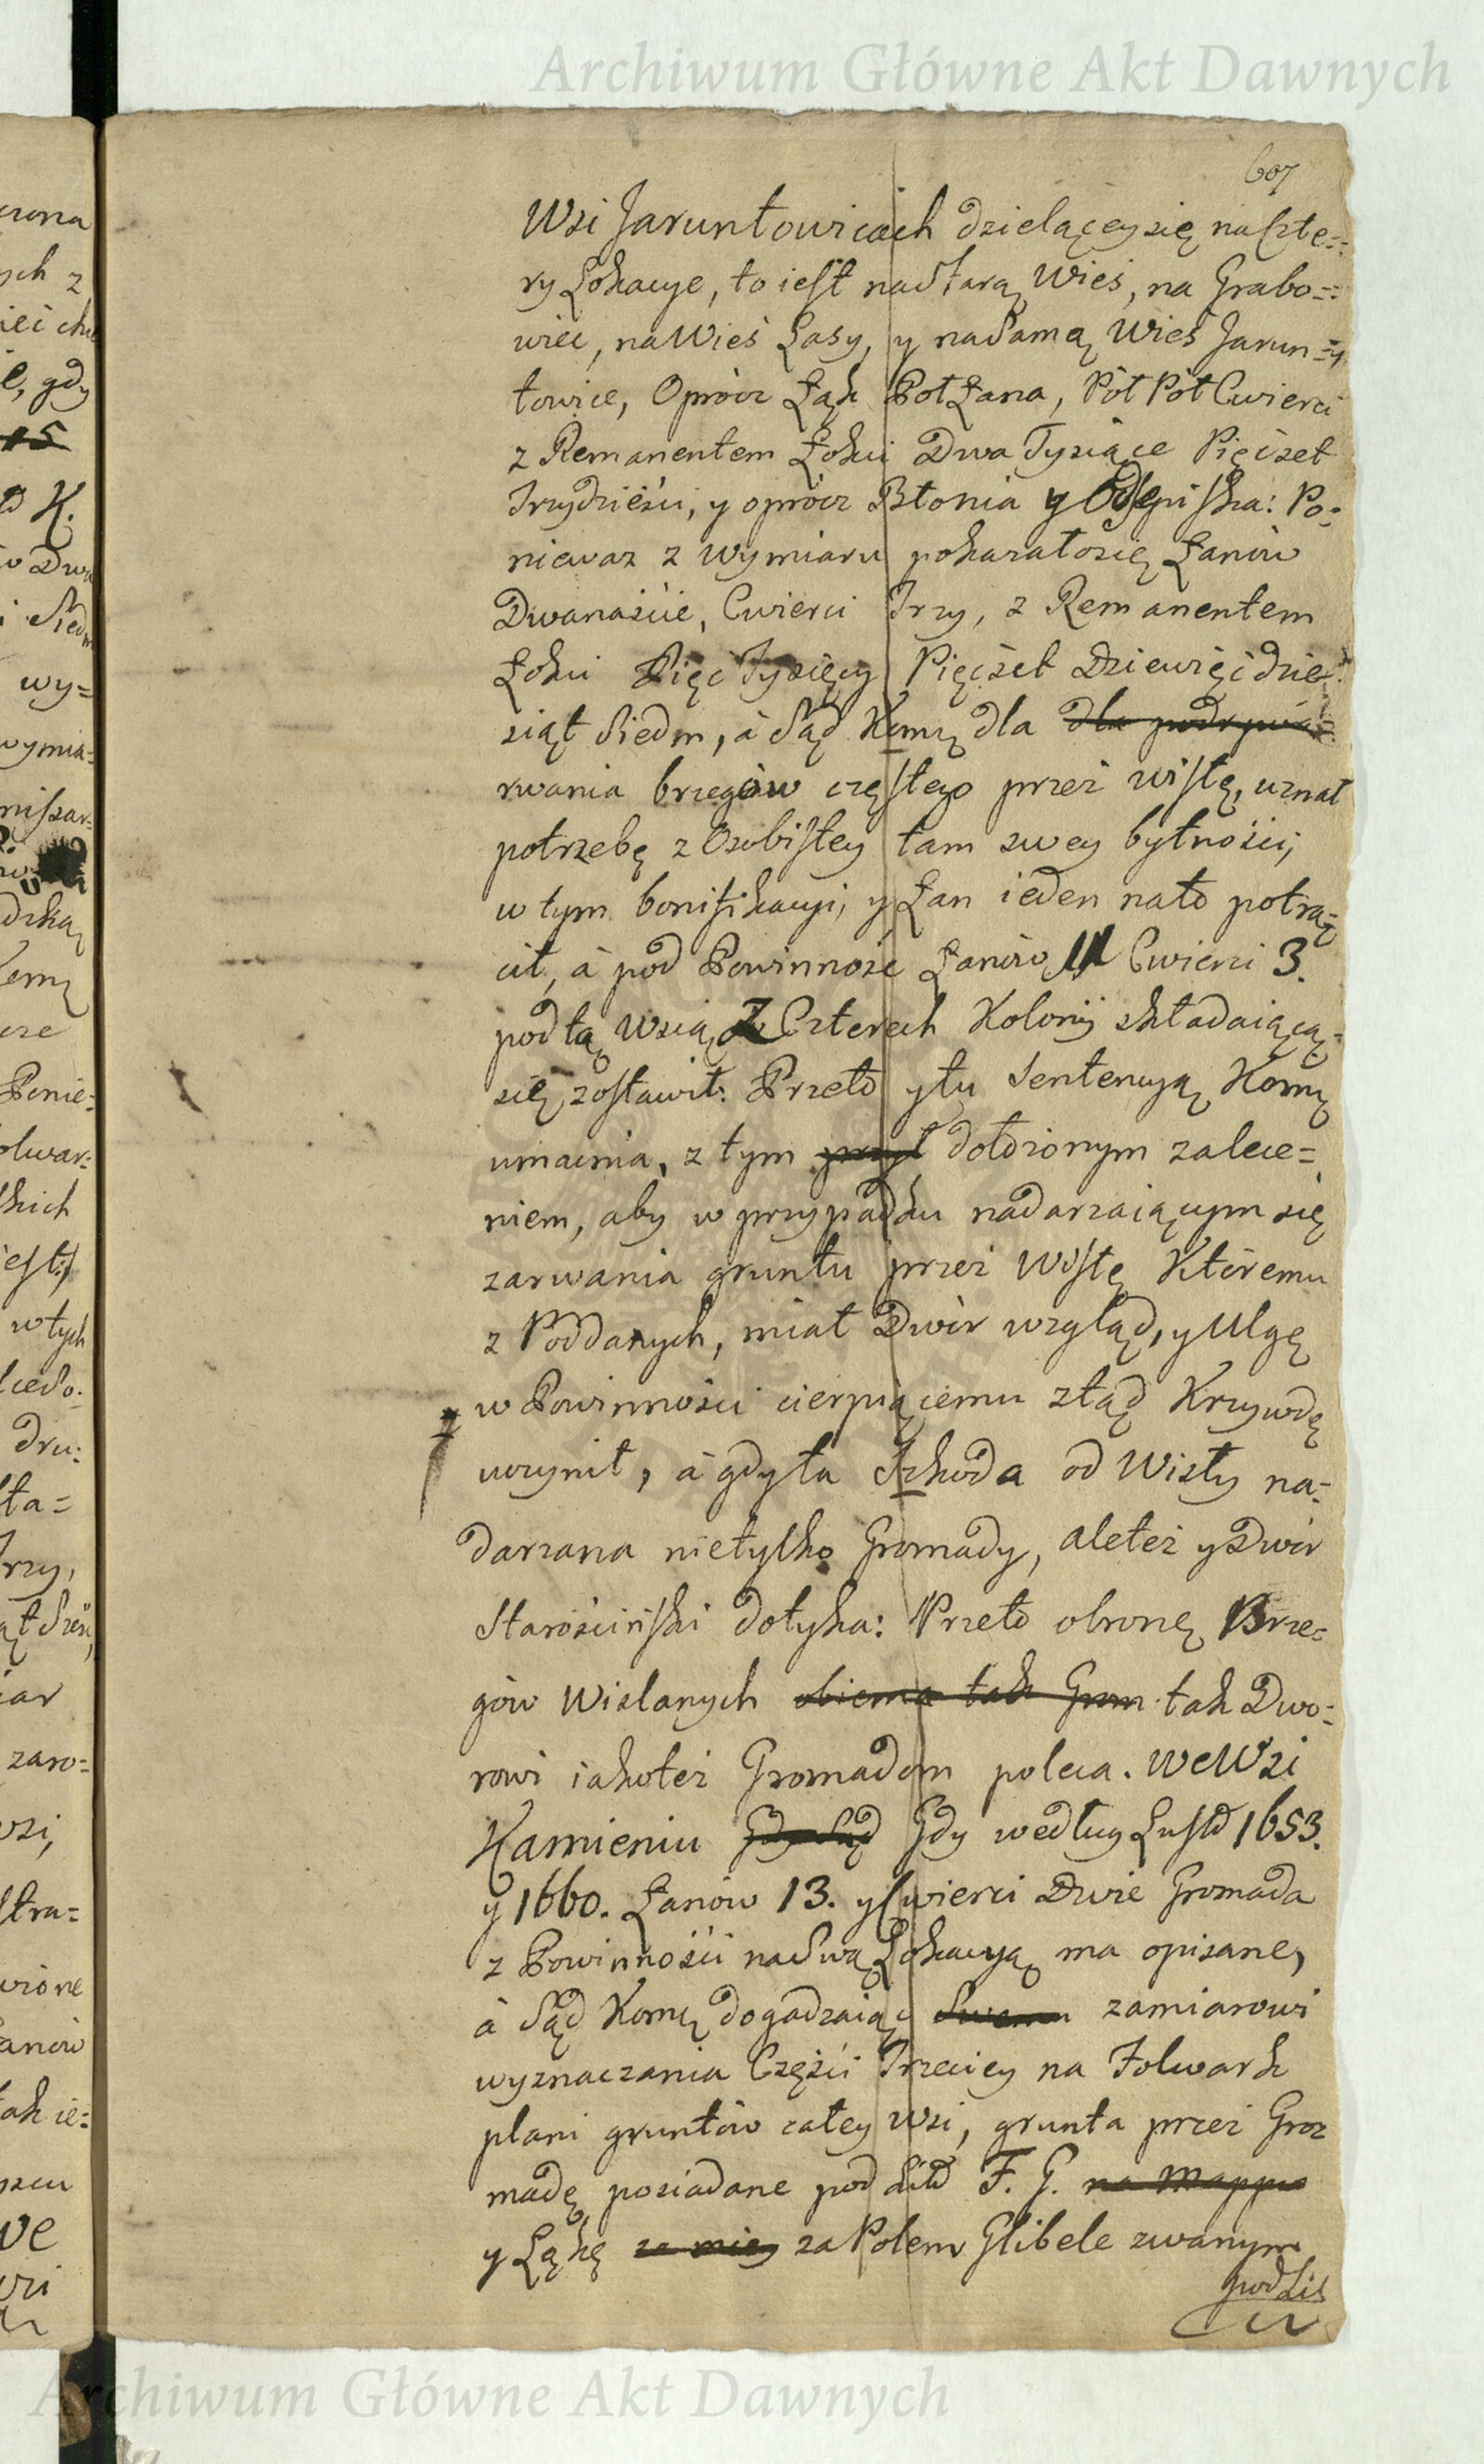 Archiwum Główne Akt Dawnych
607
Wsi Jaruntowicach dzielącey się na Czte=
ry Lokacye, to iest na Starą Wieś, na Grabo=
wiec, na Wieś Lasy, y na Samą Wieś Jarun=
towice, Oprócz Łąk Poł Łana, Pół Pół Cwierci
z Remanentem Łokci Dwa Tysiące Pięćset
Trzydzieści, y oprócz Błonia y Odsepiska: Po=
nieważ z Wymiaru pokazało się Łanów
Dwanaście, Cwierci Trzy, z Remanentem
Łokci Pięć Tysięcy Pięćset Dziewięćdzie=
siąt Siedm, à Sąd Komq dla dla podrywa=
rwania brzegów częstego przez Wisłę, uznał
potrzebę z Osobistey tam swey bytności,
w tym bonifikacyi, y Łan ieden na to potrą=
cił, à pod Powinność Łanów 11 Cwierci 3.
pod tą Wsią z Czterech Kolonij składaiącą=
się zostawił: Przeto y tu Sentencyą Komq
umacnia, z tym przył dołożonym zalece=
niem, aby w przypadku nadarzaiącym się
zarwania gruntu przez Wisłę Któremu
z Poddanych, miał Dwór wzgląd, y Ulgę
w Powinności cierpiącemu ztąd Krzywdę
uczynił, à gdy ta Szkoda od Wisły na=
darzana nietylko Gromady, ale też y Dwór
Starościński dotyka: Przeto obronę Brze=
gów Wislanych obiema tak Grom tak Dwo=
rowi iako też Gromadom poleca. We Wsi
Kamieniu Gdy Sąd Gdy według Lustr 1653.
y 1660. Łanów 13. y Cwierci Dwie Gromada
z Powinności na Swą Lokacyą ma opisane,
à Sąd Komq dogadzaiąc Swemu zamiarowi
wyznaczania Części Trzeciey na Folwark
plani gruntów całey Wsi, grunta przez Gro=
madę posiadane pod Lit F. G. na Mappie
y Łąkę za miey za Polem Glibele zwanym
pod Lit
Archiwum Główne Akt Dawnych